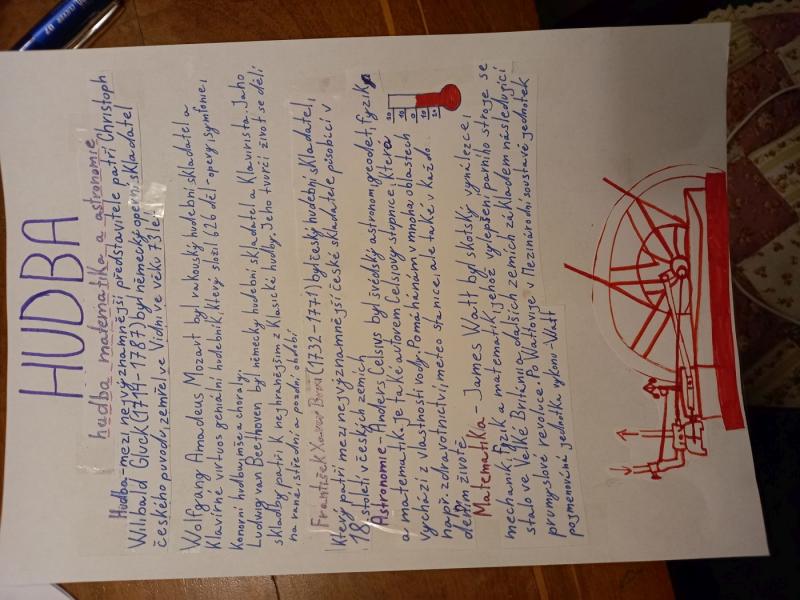 HUDBA
hudba matematika a astronomie
Hudba - mezi nejvýznamnější představitele patří Christoph
Willibald Gluck (1714-1787) byl německý operní skladatel
českého původu, zemřel ve Vídni ve věku 73 let
Wolfgang Amadeus Mozart byl rakouský hudební skladatel a
Klavírně virtuos geniální hudebník, který složil 626 děl - opery, symfonie,
Komorní hudbu, mše a chorály.
Ludwig van Beethoven byl německý hudební skladatel a Klavirista. Jeho
skladby patří k nejhranějším z Klasické hudby. Jeho tvůrčí život se dělí
na rané, střední a pozdní období
František Xaver Brixi (1732-1771) byl český hudební skladatel,
který patří mezi nejvýznamnější české skladatele působící v
18. století v českých zemích
Astronomie - Anders Celsius byl švédský astronom, geodet, fyzik
a matematik. Je také autorem Celsiovy stupnice, která
vychází z vlastností vody. Pomáhá nám v mnoha oblastech
např. zdravotnictví, meteo stanice, ale také v každo
denním životě
Matematika - James Watt byl skotský vynálezce,
mechanik, fyzik a matematik, jehož vylepšení parního stroje se
stalo ve Velké Británii a dalších zemích základem následující
průmyslové revoluce. Po Wattovi je v Mezinárodní soustavě jednotek
pojmenována jednotka výkonu - Watt